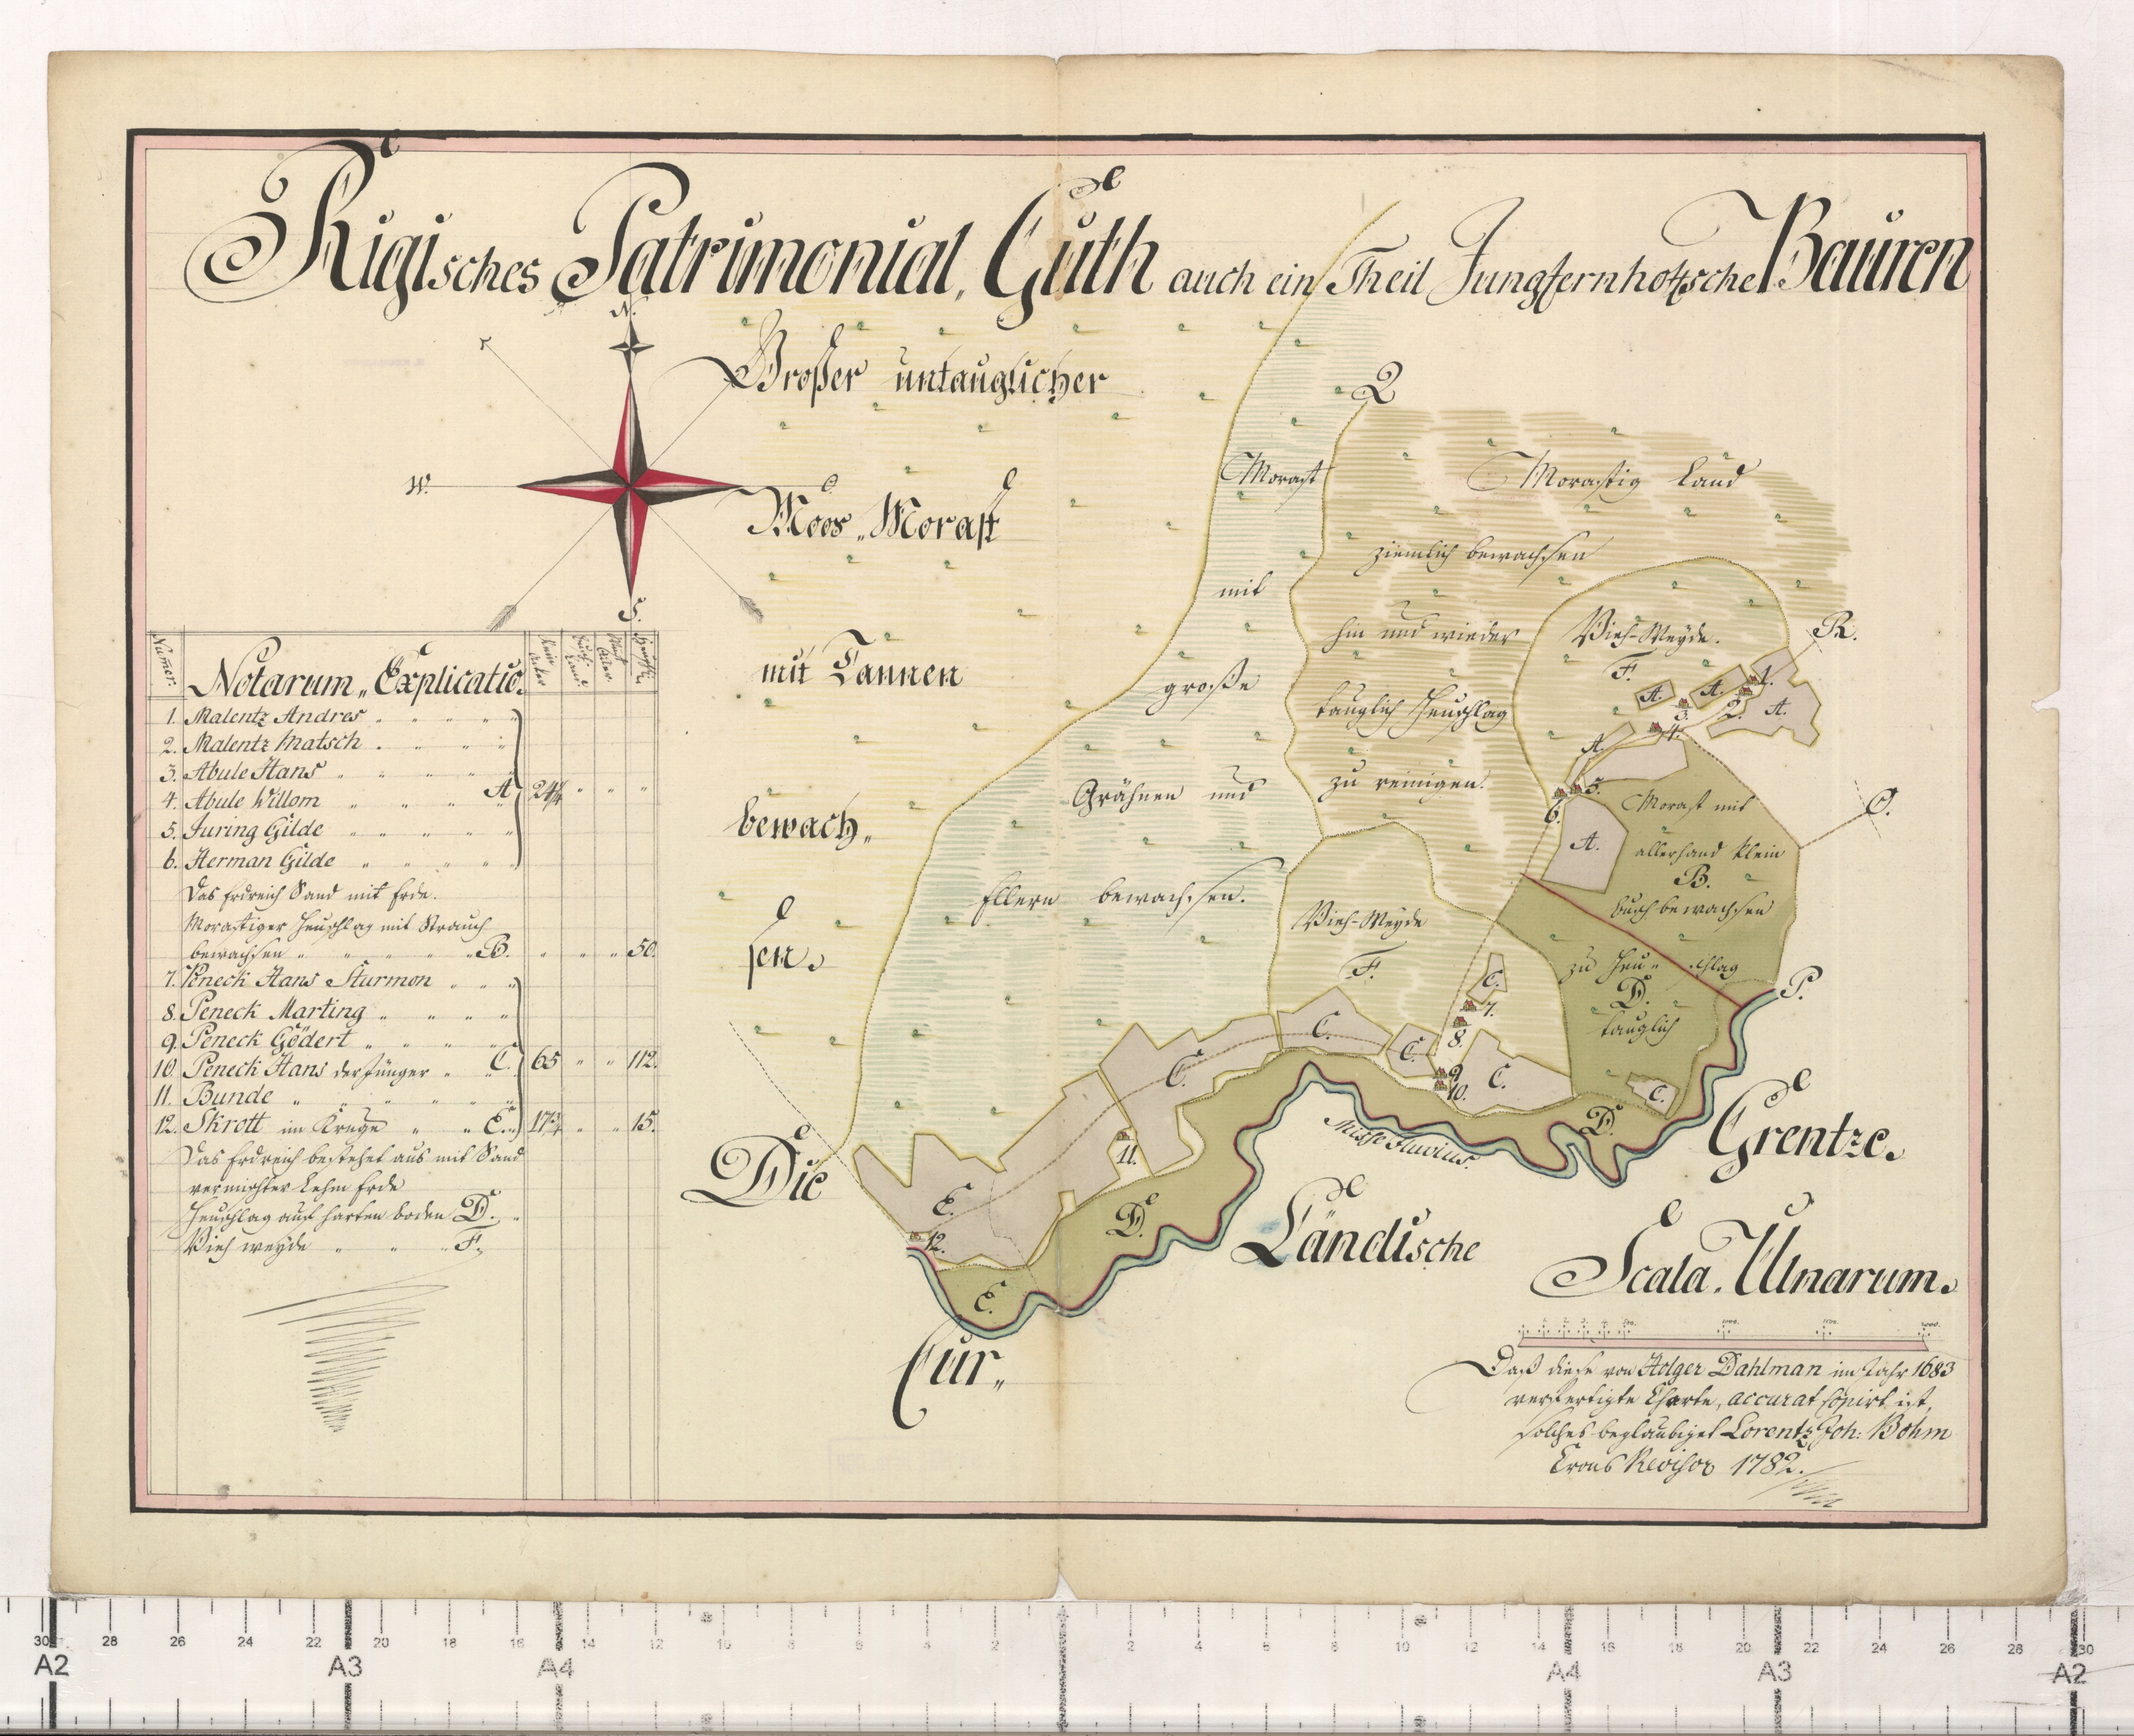 Rigisches Patrimonial, Guth auch ein Theil Jungfernhofsche Bauren
N.
W.
O
S.
Großer untauglicher
Moos „ Morast
mit Tannen
bewach„
sen.
Numer.
Notarum „ Explicatio.
1. Malentz Andres
2. Malentz Matsch
3. Abule Hans
4. Abule Willom A 24¼
5. Juring Gilde
6. Herman Gilde
Das Erdreich Sand mit Erde.
Morastiger Heuschlag mit Strauch
bewachsen B. 50.
7. Pneck Hans Sturmon
8. Peneck Marting
9. Peneck Gödert
10. Peneck Hans der Jünger C. 65 112.
11. Bunde
12. Skrott im Kruge E. 17¾ 15.
Das Erdreich bestehet aus mit Sand
vermischter Lehm Erde
Heuschlag auf harten boden D.
Vieh weyde F.
Q
Morast
mit
große
Grähnen und
Ellern bewachsen.
Morastig Land
ziemlich bewachsen
hin und wieder
tauglich Heuschlag
zu reinigen.
Vieh-Weyde.
F.
R.
A.
A.
1.
2.
A.
3.
4.
A.
5.
6.
A.
O.
Morast mit
allerhand klein
B.
busch bewachsen
zu Heu„schlag
D.
tauglich
P.
Vieh-Weyde
F.
C.
7.
8.
9.
10.
C.
C.
C.
C.
C.
11.
D.
D.
E.
12.
E.
Misse Fluvius.
Die
Cur„
Ländische
Grentze.
Scala. Ulnarum.
Daß diese von Holger Dahlman im Jahr 1683
verfertigte Charte, accurat copirt ist,
solches beglaubiget Lorentz Joh: Bohm
Crons Revisor 1782.
30 28 26 24 22 20 18 16 14 12 10 8 6 4 2 2 4 6 8 10 12 14 16 18 20 22 24 26 28 30
A2 A3 A4 A4 A3 A2